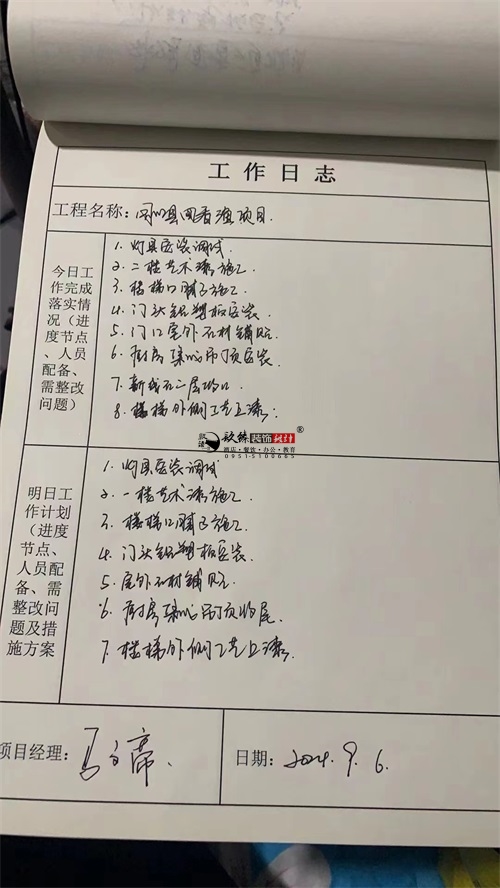 工作日志
工程名称:
今日工作完成落实情况(进度节点、人员配备、需整改问题)
1. 灯具安装调试.
2. 二楼艺术漆施工.
3. 楼梯口腻子施工.
4. 门头铝塑板安装.
5. 门口室外石材铺贴.
6. 厨房集成吊顶安装.
7. 二层收口
8. 楼梯外侧工艺上漆;
装饰设计®
酒店·餐饮·办公·教育
0951-5100665
明日工作计划(进度节点、人员配备、需整改问题及措施方案
1. 灯具安装调试
2. 一楼艺术漆施工.
3. 楼梯口腻子施工.
4. 门头铝塑板安装.
5. 室外石材铺贴.
6. 厨房集成吊顶收尾.
7. 楼梯外侧工艺上漆.
项目经理:
日期: 2024. 9. 6.